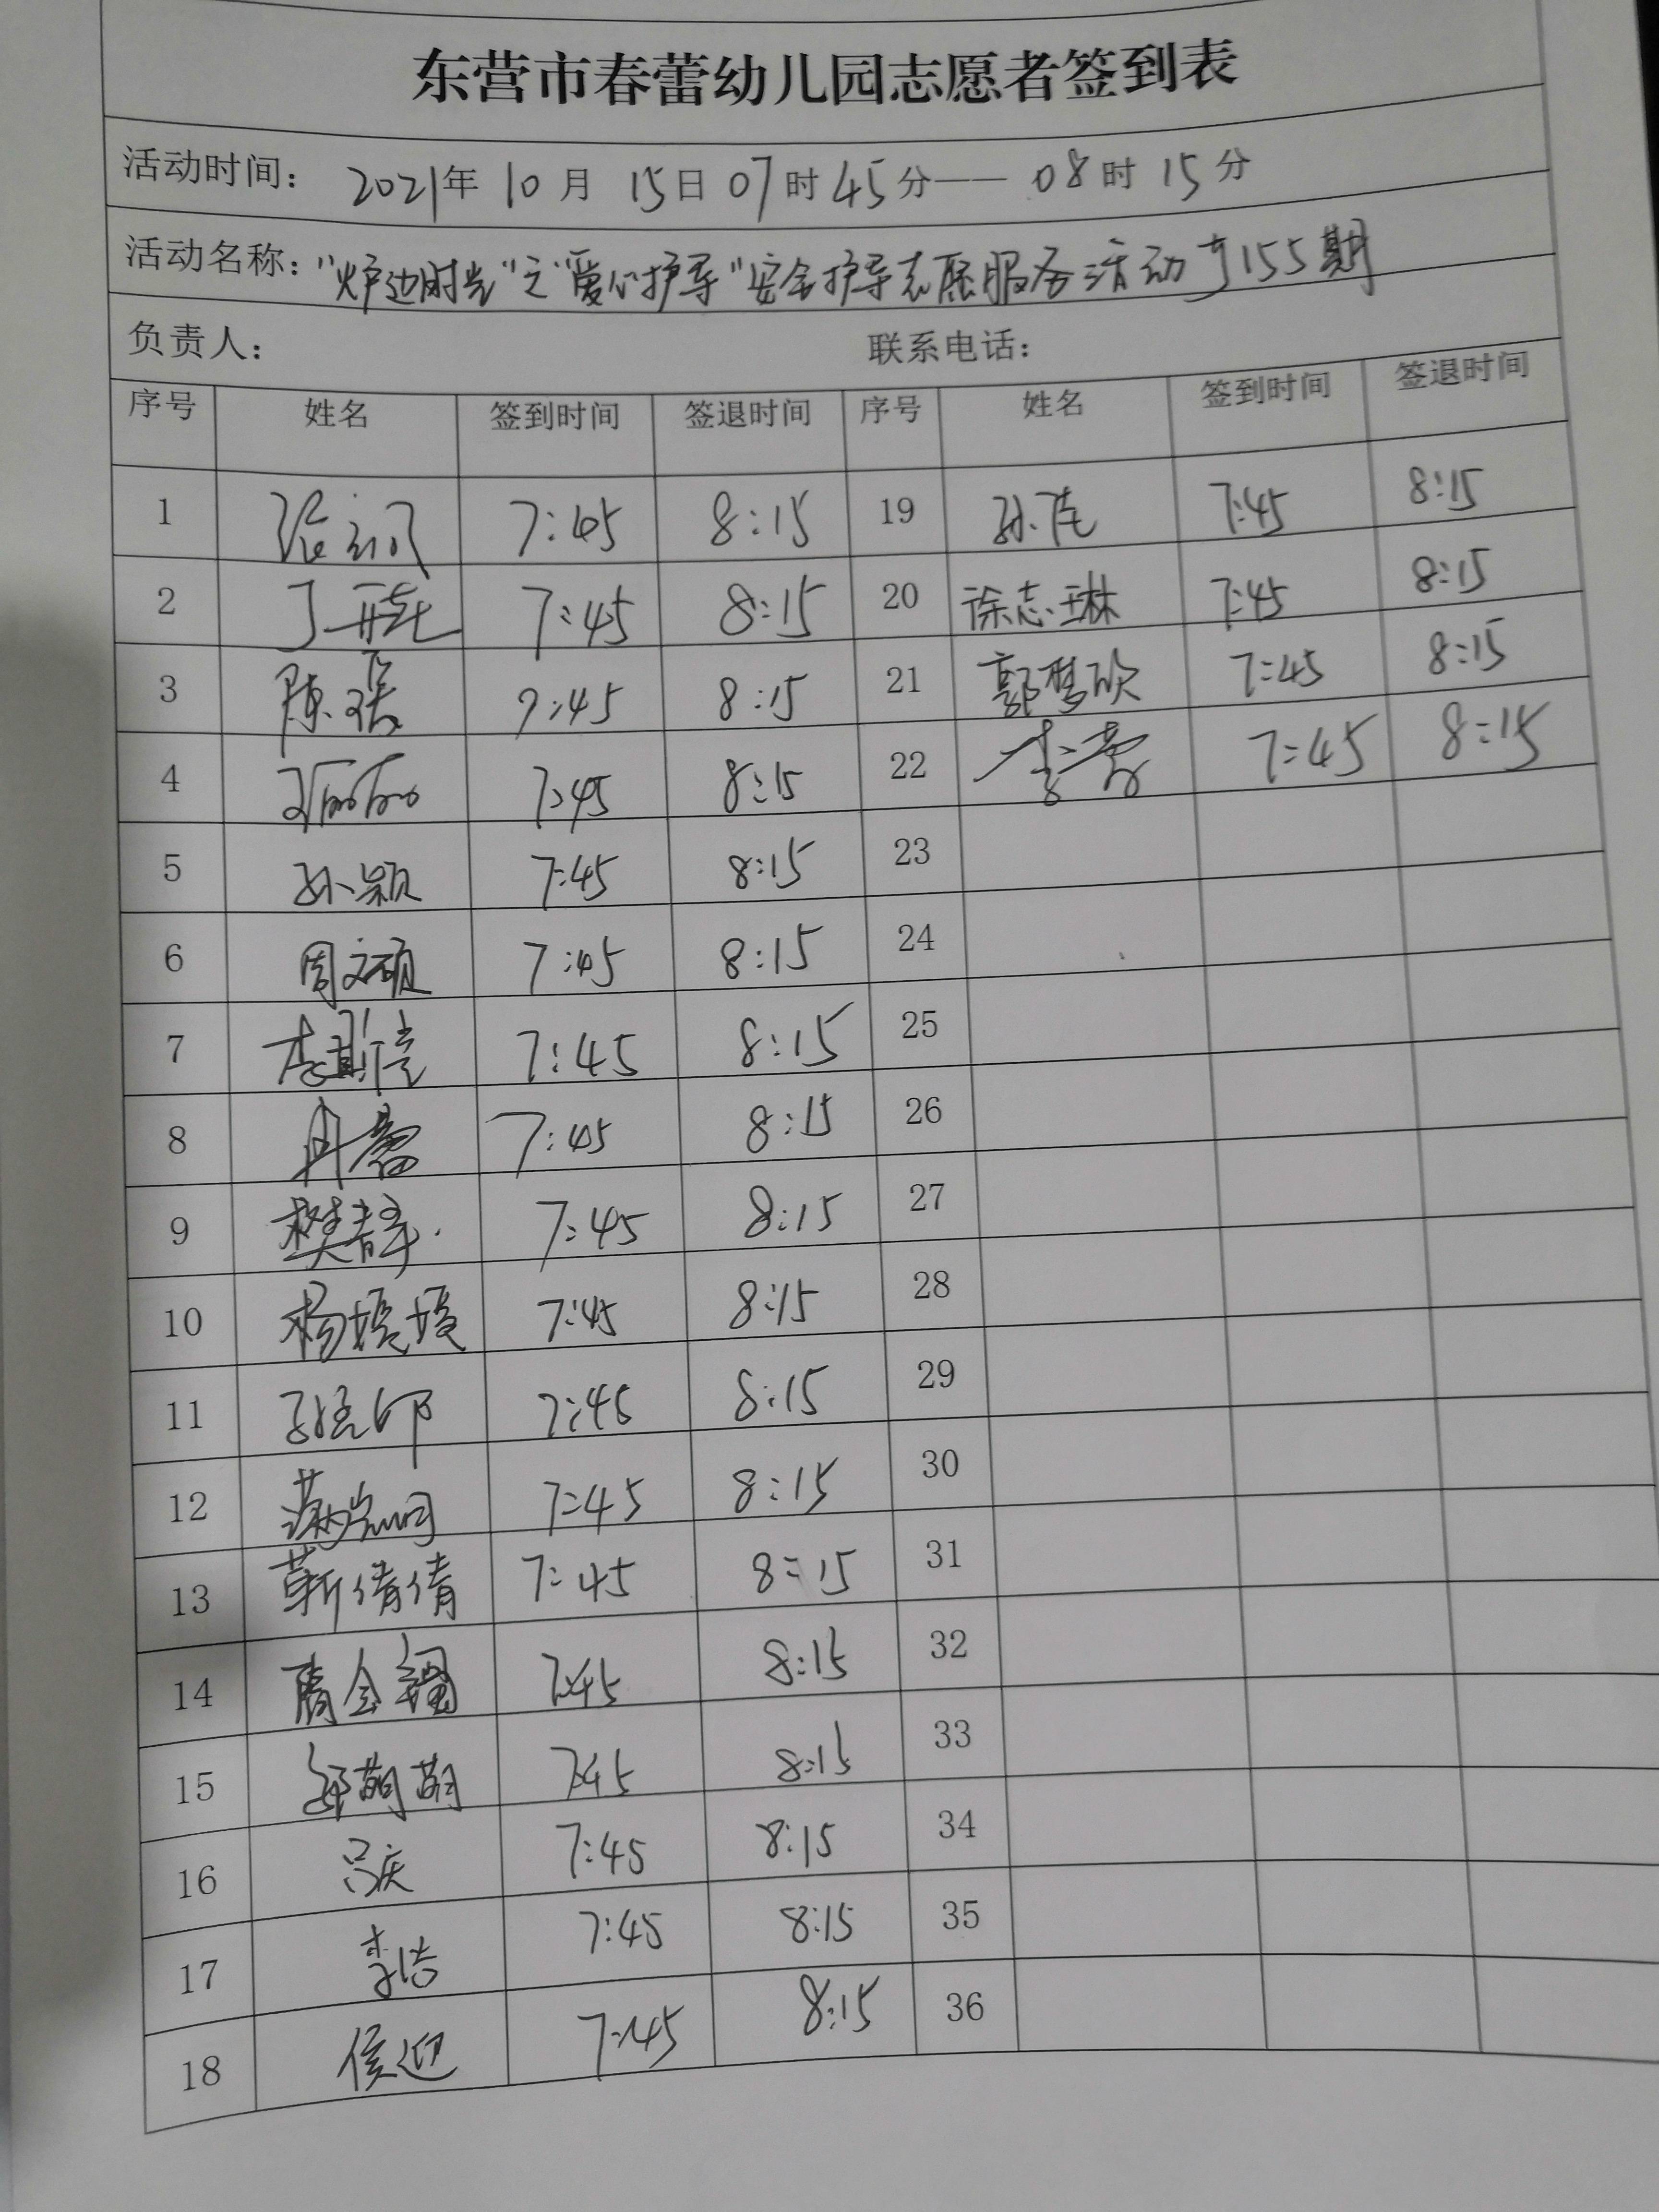 东营市春蕾幼儿园志愿者签到表
活动时间: 2021年 10月 15日 07时45分——08时15分
活动名称:"炉边时光"之"爱心护导"安全护导志愿服务活动第155期
负责人: 联系电话:
序号 姓名 签到时间 签退时间 序号 姓名 签到时间 签退时间
1 7:45 8:15 19 孙佳 7:45 8:15
2 丁燕 7:45 8:15 20 徐志琳 7:45 8:15
3 陈 7:45 8:15 21 郭梦欣 7:45 8:15
4 7:45 8:15 22 李 7:45 8:15
5 孙颖 7:45 8:15 23
6 周文硕 7:45 8:15 24
7 李斯佳 7:45 8:15 25
8 7:45 8:15 26
9 樊静 7:45 8:15 27
10 杨媛媛 7:45 8:15 28
11 7:45 8:15 29
12 7:45 8:15 30
13 靳倩倩 7:45 8:15 31
14 7:45 8:15 32
15 萌萌 7:45 8:15 33
16 吕庆 7:45 8:15 34
17 李浩 7:45 8:15 35
18 侯迎 7:45 8:15 36